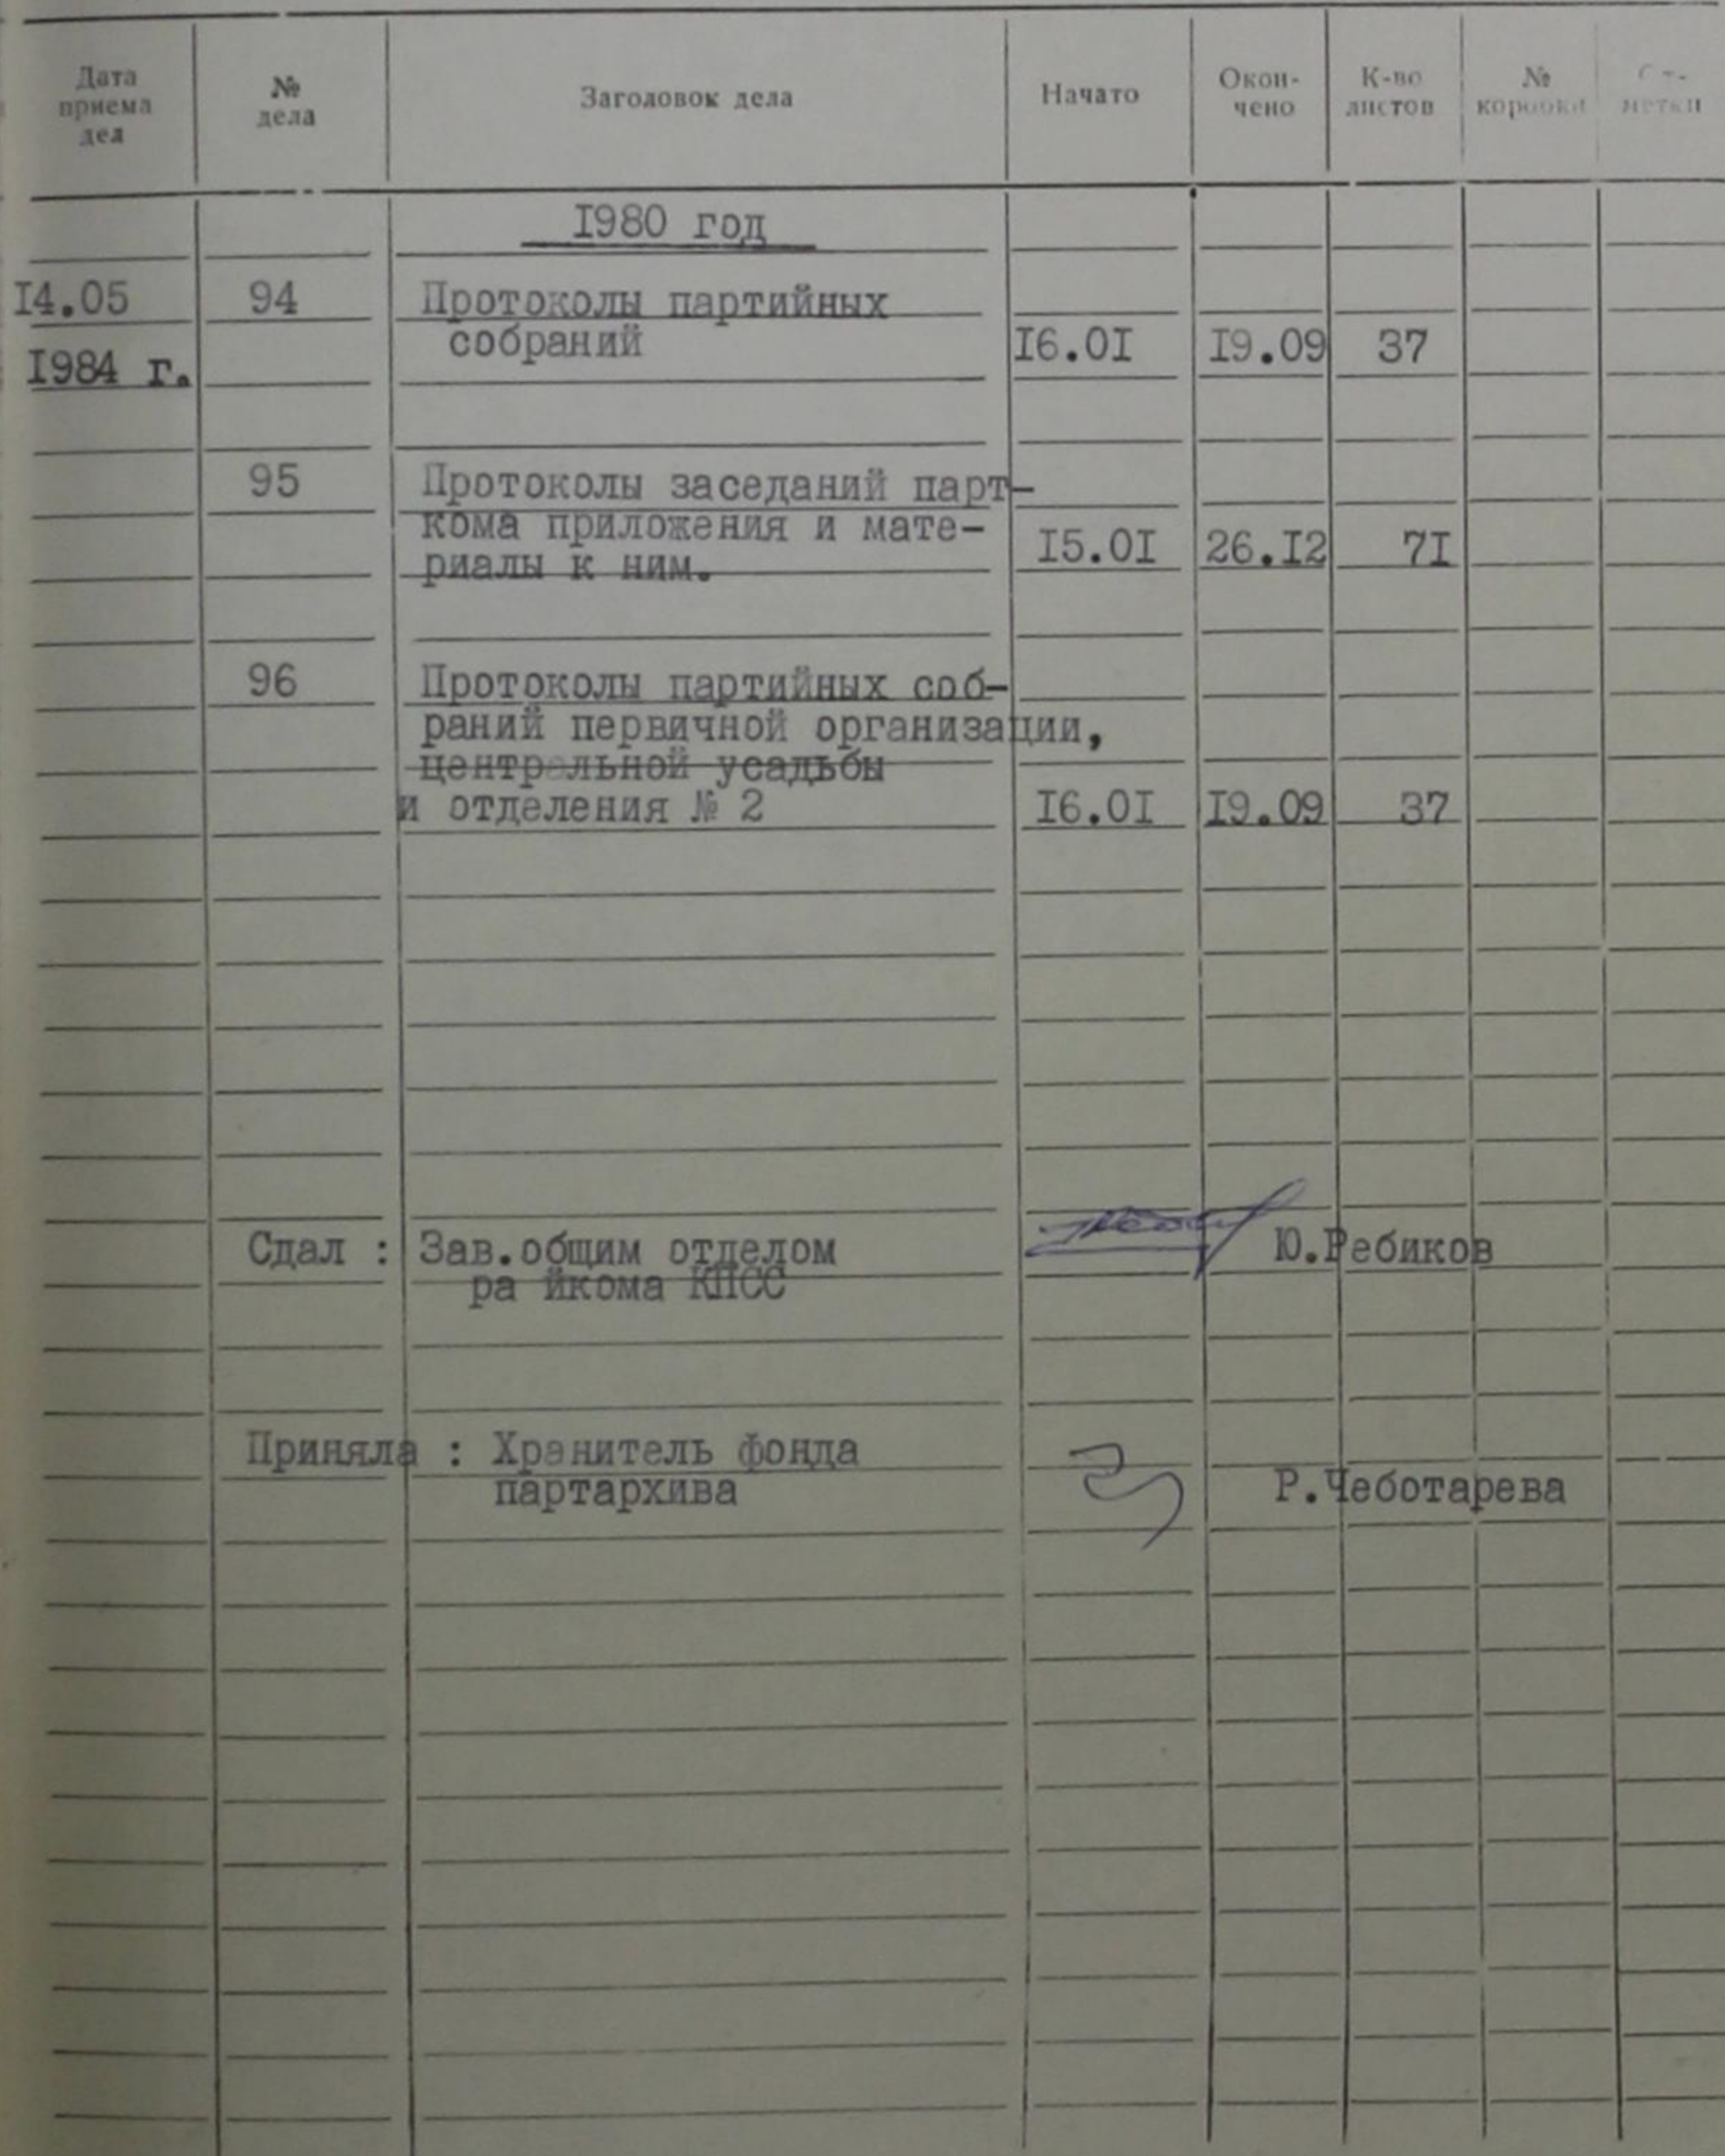 Дата приема дел № дела Заголовок дела Начато Окон-чено К-во листов № коробки
1980 год
14.05 94 Протоколы партийных
собраний 16.01 19.09 37
1984 г.
95 Протоколы заседаний парт-
кома приложения и мате-
риалы к ним. 15.01 26.12 71
96 Протоколы партийных соб-
раний первичной организации,
центральной усадьбы
и отделения № 2 16.01 19.09 37
Сдал : Зав.общим отделом Ю.Ребиков
ра йкома КПСС
Приняла : Хранитель фонда
партархива Р.Чеботарева